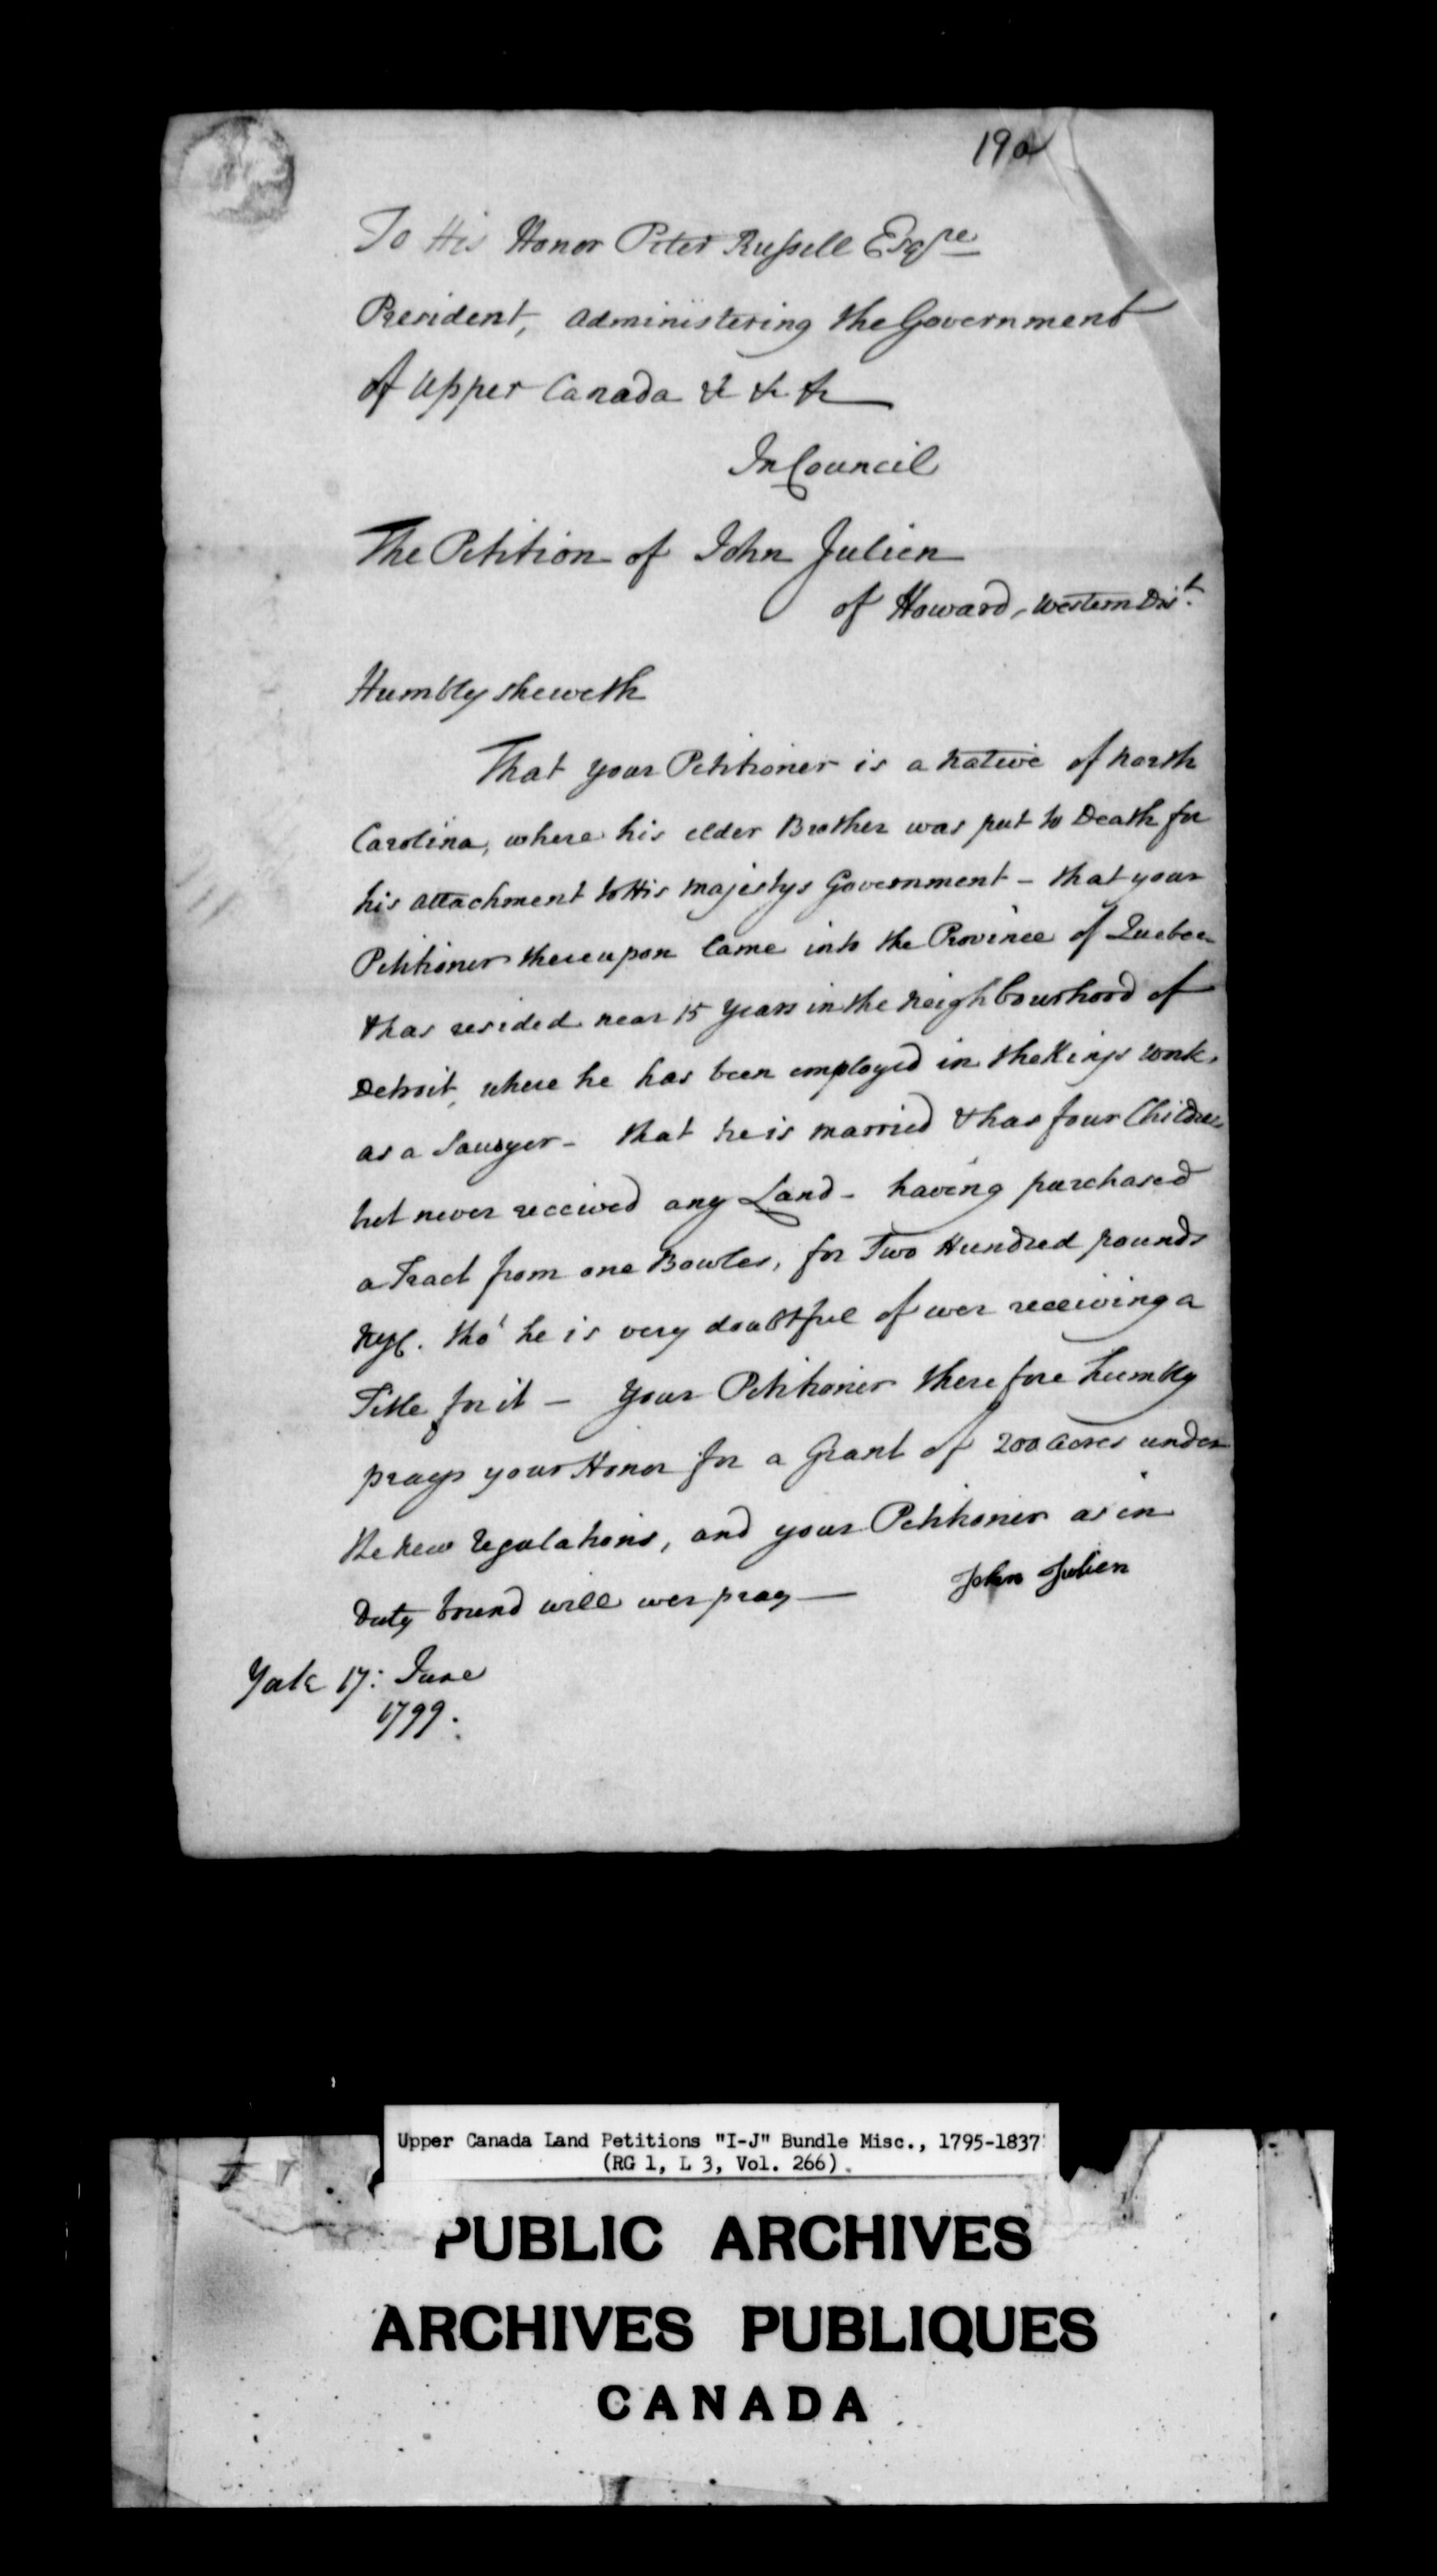 19a
To His Honor Peter Russell Esqre
President, administering the Government
of Upper Canada &c &c &c
In Council
The Petition of John Julien
of Howard, Western Dist.
Humbly sheweth
That your Petitioner is a native of North
Carolina, where his elder Brother was put to Death for
his attachment to His Majestys Government – that your
Petitioner thereupon Came into the Province of Quebec
& has resided near 15 years in the neighbourhood of
Detroit, where he has been employed in the Kings works
as a Sawyer – that he is married & has four Children
but never received any Land – having purchased
a Tract from one Bowles, for Two Hundred pounds
NYC. tho' he is very doubtful of ever receiving a
Title for it – Your Petitioner therefore humbly
prays your Honor for a Grant of 200 acres under
the new regulations, and your Petitioner as in
Duty bound will ever pray —
John Julien
York 17: June
1799.
Upper Canada Land Petitions "I-J" Bundle Misc., 1795-1837
(RG 1, L 3, Vol. 266)
PUBLIC ARCHIVES
ARCHIVES PUBLIQUES
CANADA